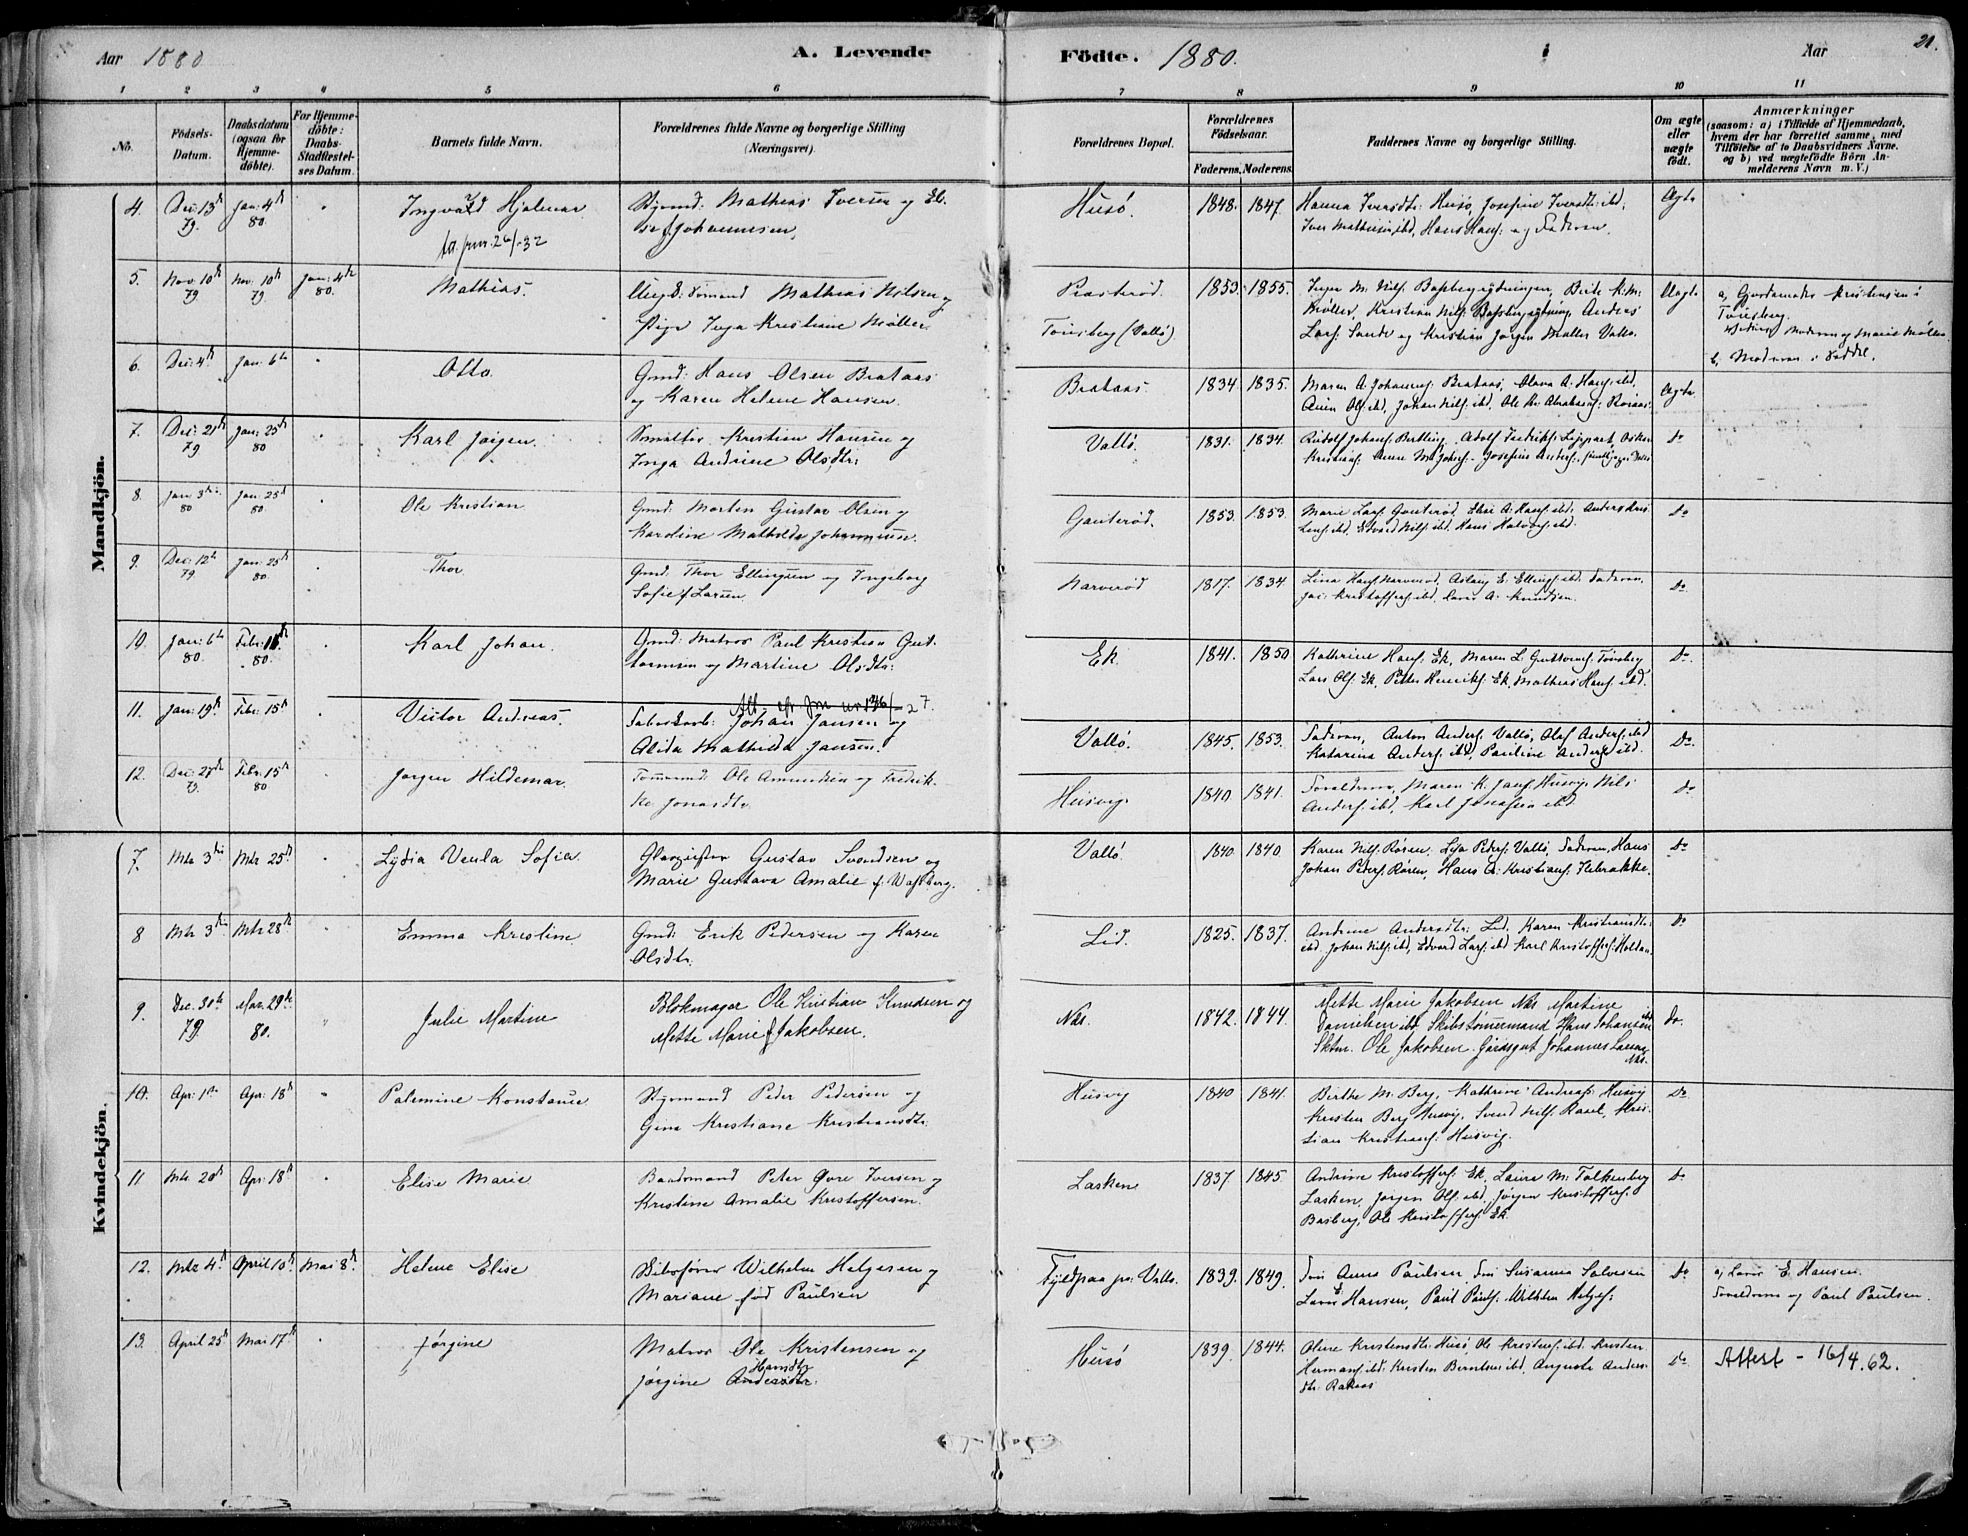 Aar 1880 A. Levende Födte. 1880. i Aar 21.
1 2 3 4 5 6 7 8 9 10 11
No. Födsels-Datum. Daabsdatum (ogsaa för Hjemme-döbte). For Hjemme-döbte: Daabs-Stadfæstel-ses Datum. Barnets fulde Navn. Forældrenes fulde Navne og borgerlige Stilling (Næringsvei). Forældrenes Bopæl. Forældrenes Födselsaar. Faderens. Moderens. Faddernes Navne og borgerlige Stilling. Om ægte eller uægte födt. Anmærkninger (saasom: a) i Tilfælde af Hjemmedaab, hvem der har forrettet samme, med Tilföielse af to Daabsvidners Navne. og b) ved uægtefödte Börn An-melderens Navn m. V.)
Mandkjön.
4. Dec: 13d 79. Jan: 4d 80. Ingvald Hjalmar Styrmd: Mathias Iversen og El-
se f. Johannesen. Husö. 1848. 1847. Hanna Iversdtr: Husö, Josefine Iversdtr: ibd,
Iver Mathisen ibd, Hans Hans: og Faderen. Ægte
5. Nov. 10d 79 Nov. 10d 79 Jan: 4de 80. Mathias. Ungk: Sömand Mathias Nilsen og
Pige Inga Kristiane Möller. Præsteröd. Tönsberg (Vallö). 1853. 1855. Uægte
Möller, Kristian Nils:
Lars: Sande og Kristian Jörgen Möller Vallö.
a, Gjordemoder Kristensen i
Tönsberg.
Moderen og Marie Möller
b, Moderen
6. Dec: 4d Jan: 6te Otto Gmd: Hans Olsen Brataas
og Karen Helene Hansen. Brataas. 1834. 1835. Maren A. Johannes: Brataas, Olava A. Hans: ibd,
Ols: ibd, Johan Nils: ibd, Ole Ægte
7. Dec: 21d 79 Jan: 25d 80 Karl Jörgen Kristian Hansen og
Inga Andrine Olsdtr: Vallö. 1831. 1834. Rudolf Johans: Berthing, Adolf Fredriks: Lippert, Oskar
Kristians: Anne M. Johs: Josefine Anders: Do
8. Jan: 3die 80 Jan: 25d 80. Ole Kristian Gmd: Morten Gustav Olsen og
Kardine Mathilde Johannesen. Gauteröd. 1853. 1853. Marie Lars: Gauteröd, Else A. Hans: ibd. Anders Kris-
tens: ibd, Edvard Nils: ibd. Hans Halvors: ibd. Do
9. Dec: 12te 79 Jan: 25d 80. Thor Gmd: Thor Ellingsen og Ingeborg
Sofie f. Larsen Narveröd 1817. 1834. Lina Hans: Narveröd, Aslaug E. Ellings: ibd. Faderen.
Kristoffers: ibd, Lars A. Knudsen. Do
10. Jan: 6te 80. Febr: 15d 80. Karl Johan. Gmd: Matros Paul Kristian Gut-
tormsen og Martine Olsdtr: Ek. 1841. 1850 Kathrine Hans: Ek, Maren L. Guttorms: Tönsberg
Lars Ols: Ek, Petter Henriks: Ek, Mathias Hans: ibd. Do.
11. Jan: 19d Febr: 15d Victor Andreas. Johan Jansen og
Alida Mathilda Jansen. Vallö. 1845. 1853. Faderen, Anton Anders: Vallö, Olaf Anders: ibd
Katarina Anders: ibd, Pauline Anders: ibd. Do.
12. Dec: 27de 79. Febr: 15d 80 Jörgen Hildemar. Tömmermd: Ole Amundsen og Fredrik-
ke Jonasdtr. Husvig. 1840 1841. Forældrene, Maren K. Jans: Husvig, Nils
Anders: ibd, Karl Jonassen ibd. Do
Kvindekjön.
7. Mts 3die Mts 25d Lydia Veula Sofia Glarmester Gustav Svendsen og
Marie Gustava Amalie f. Wassberg. Vallö. 1840 1840 Karen Nils: Rosen, Lisa Peders: Vallö, Faderen, Hans
Johan Peders: Roren, Hans Chr: Kristians: Ilebrække. Do
8 Mts 3die Mts 28de Emma Kristine Gmd: Erik Pedersen og Karen
Olsdtr: Lid. 1825. 1837. Andrine Andersdtr: Lid. Karen Kristiansdtr:
ibd, Johan Nils: ibd, Edvard Lars: ibd Karl Kristoffers: Holtan. Do
9. Dec. 30te 79. Mar. 29de 80. Julie Martine Blokmager Ole Kristian Knudsen og
Mette Marie f. Jakobsen. Næs. 1842. 1844. Mette Marie Jakobsen Næs Martine
Danielsen ibd Skibstömermand Hans Johansen ibd
Sktm. Ole Jakobsen. Gårdsgut Johannes Larsen
Næs. do.
10. Apr: 1ste Apr: 18d Palemine Konstance Styrmand Peder Pedersen og
Gina Kristiane Kristiansdtr: Husvig 1840 1841. Birthe M. Berg, Kathrine Andreas: Husvig
Kristen Berg Husvig, Svend Nils: Ravel, Kris-
tian Kristians: Husvig. Do
11 Mts 20d Apr: 18d Elise Marie Baadsmand Peter Gove Iversen og
Kristine Amalie Kristoffersen. Lasken 1837. 1845. Andrine Kristoffers: Ek, Laura M. Falkenberg
Lasken, Jörgen Ols: ibd, Jörgen Kristoffers:
Basberg, Ole Kristoffers: Ek. Do
12. Mts 4d. April 10d. Mai 8d. Helene Elise Skibsförer Wilhelm Helgesen og
Mariane föd Paulsen Fyldpaa pr: Vallö. 1839. 1849. Frk Anne Paulsen, Frk Susanna Salvesen
Lars E. Hansen, Paul Pauls: Wilhelm Helges: Do a, Lars E. Hansen.
Forældrene og Paul Paulsen.
13. April 25d Mai 17d Jörgine Matros Ole Kristensen og
Hansdtr
Jörgine Andersdtr: Husö 1839. 1844. Oline Kristensdtr: Husö, Ole Kristens: ibd. Kristen
Hermans: ibd. Kristen Berntsen ibd, Auguste Anders-
dtr. Rakaas Do Attest - 16/4.62.